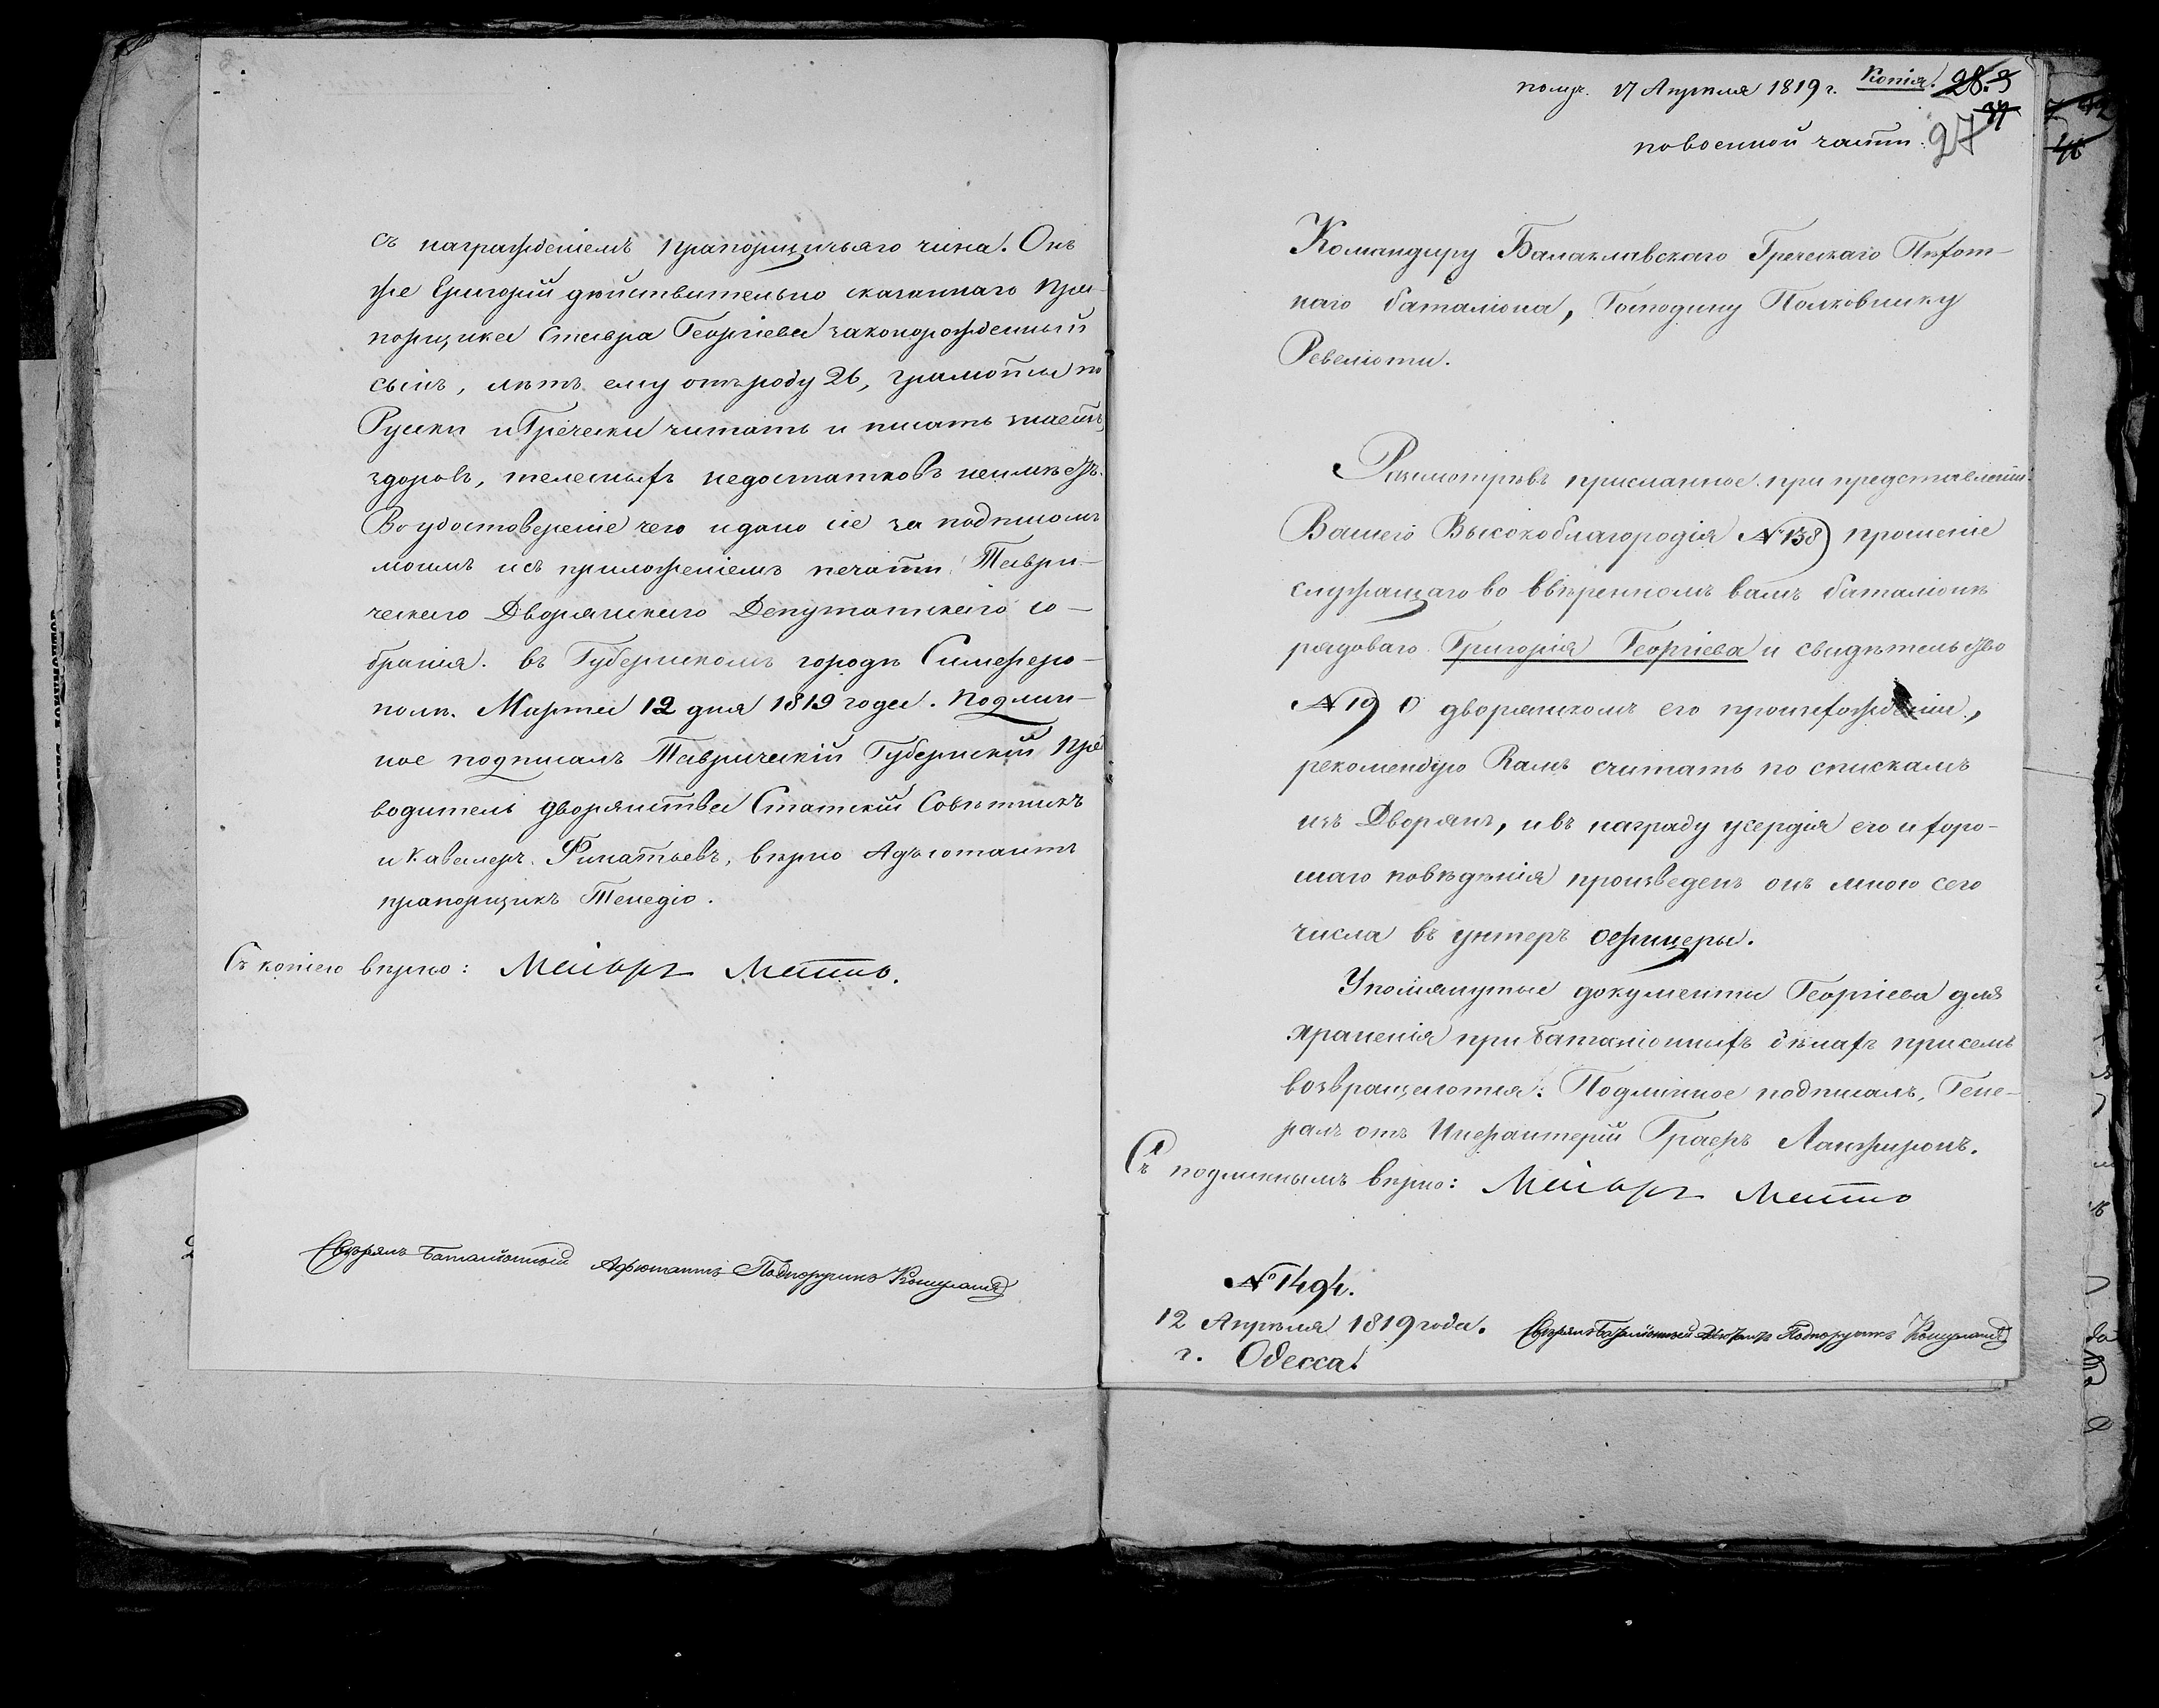 съ награжденіемъ прапорщичьяго чина. Онъ
же Григорій дѣйствительно сказаннаго пра-
порщика Ставра Георгіева законорожденный
сынъ, лѣтъ ему отъ роду 26, грамоты по
Руски и Гречески читать и писать знаетъ,
здоровъ, телесныхъ недостатковъ неимѣетъ.
Во удостовереніе чего и дано сіе за подписомъ
моимъ и съ приложеніемъ печати Таври-
ческаго Дворянскаго Депутатскаго со-
бранія. въ Губернскомъ городѣ Симферо-
полѣ. Марта 12 дня 1819 года. Подлин-
ное подписалъ Таврическій Губернскій Пред
водитель дворянства Статскій Совѣтникъ
и Кавалеръ Филатьевъ, вѣрно Адъютантъ
прапорщикъ Тенедіо.
Съ копіею вѣрно: Маіоръ Матто.
Свѣрялъ Баталіонный Адъютантъ Подпоручикъ
получ. 17 Апрѣля 1819 г. Копія. 28. 3
27
по военной части.
Командиру Балаклавскаго Греческаго Пѣхот-
наго баталіона, Господину Полковнику
Ревеліоти.
Разсмотрѣвъ присланное при представленіи
Вашего Высокоблагородія №138) прошеніе
служащаго во ввѣренномъ вамъ баталіонѣ
рядоваго Григорія Георгіева и свидѣтельство
№19) о дворянскомъ его происхожденіи,
рекомендую Вамъ считать по спискамъ
изъ Дворянъ, и въ награду усердія его и хоро-
шаго поведѣнія произведенъ онъ мною сего
числа въ унтеръ офицеры.
Упомянутые документы Георгіева для
храненія при баталіонныхъ дѣлахъ при семъ
возвращаются: Подлинное подписалъ, Гене-
ралъ отъ Инфантеріи Графъ Ланжиронъ.
Съ подлиннымъ вѣрно: Маіоръ Матто
№ 1494.
12 Апрѣля 1819 года. Свѣрялъ Баталіонный Адъютантъ Подпоручикъ
г. Одесса.